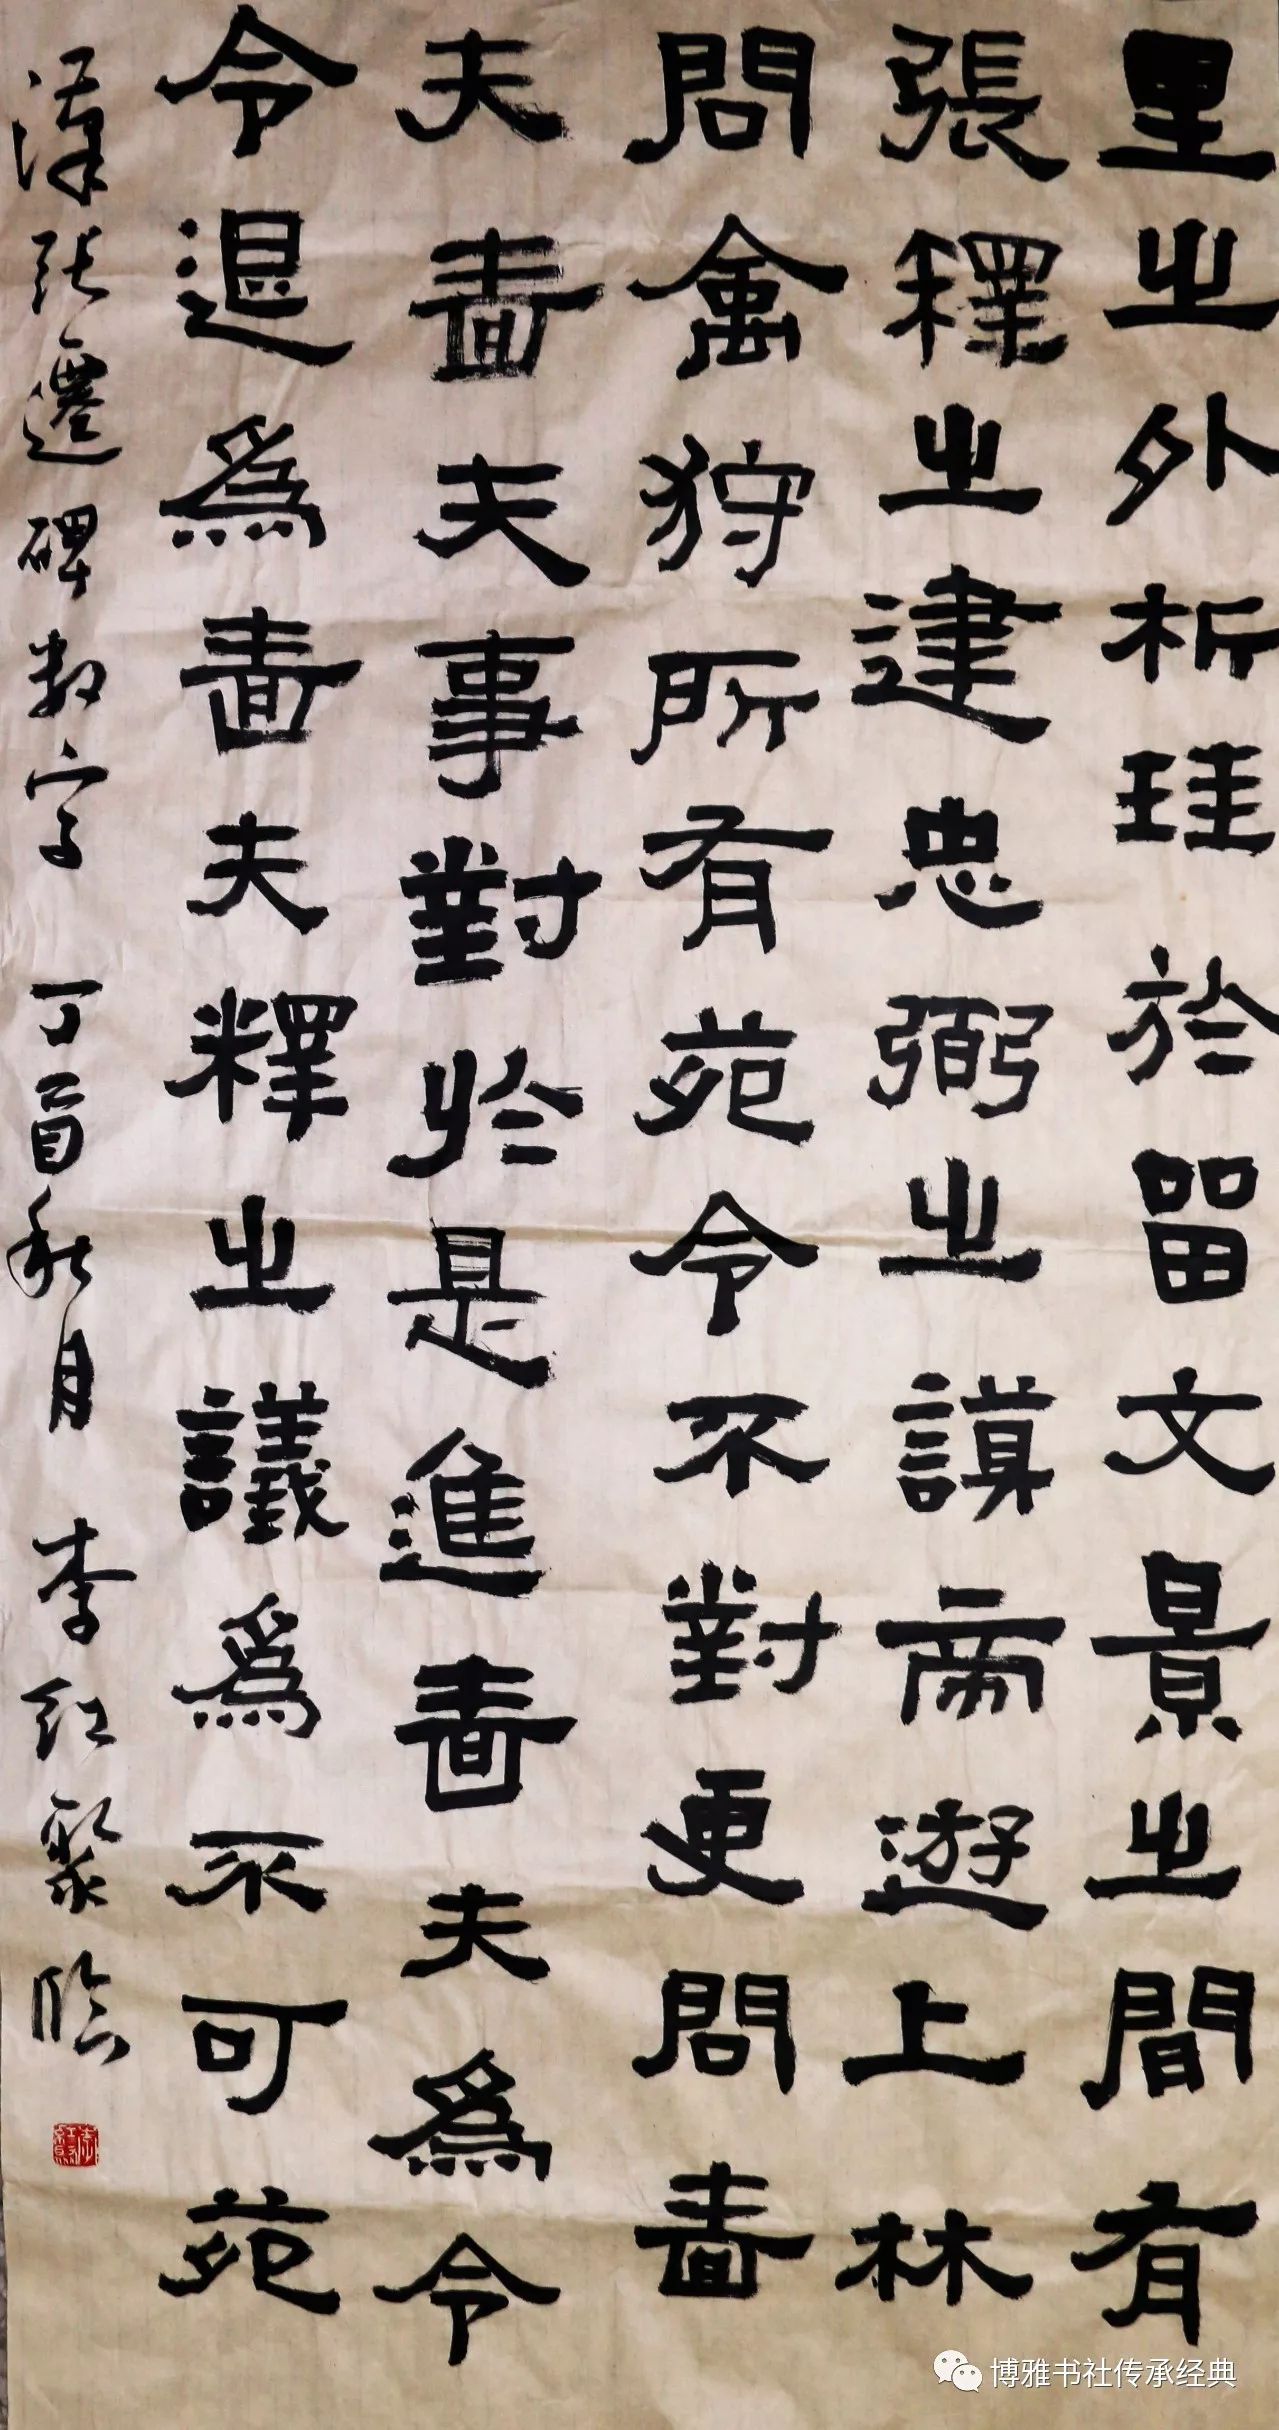 里之外析珪於留文景之間有
張釋之建忠弼之謨帝遊上林
問禽狩所有苑令不對更問嗇
夫嗇夫事對於是進嗇夫為令
令退為嗇夫釋之議為不可苑
漢張遷碑數字 丁酉秋月 李紅聚臨
博雅书社传承经典